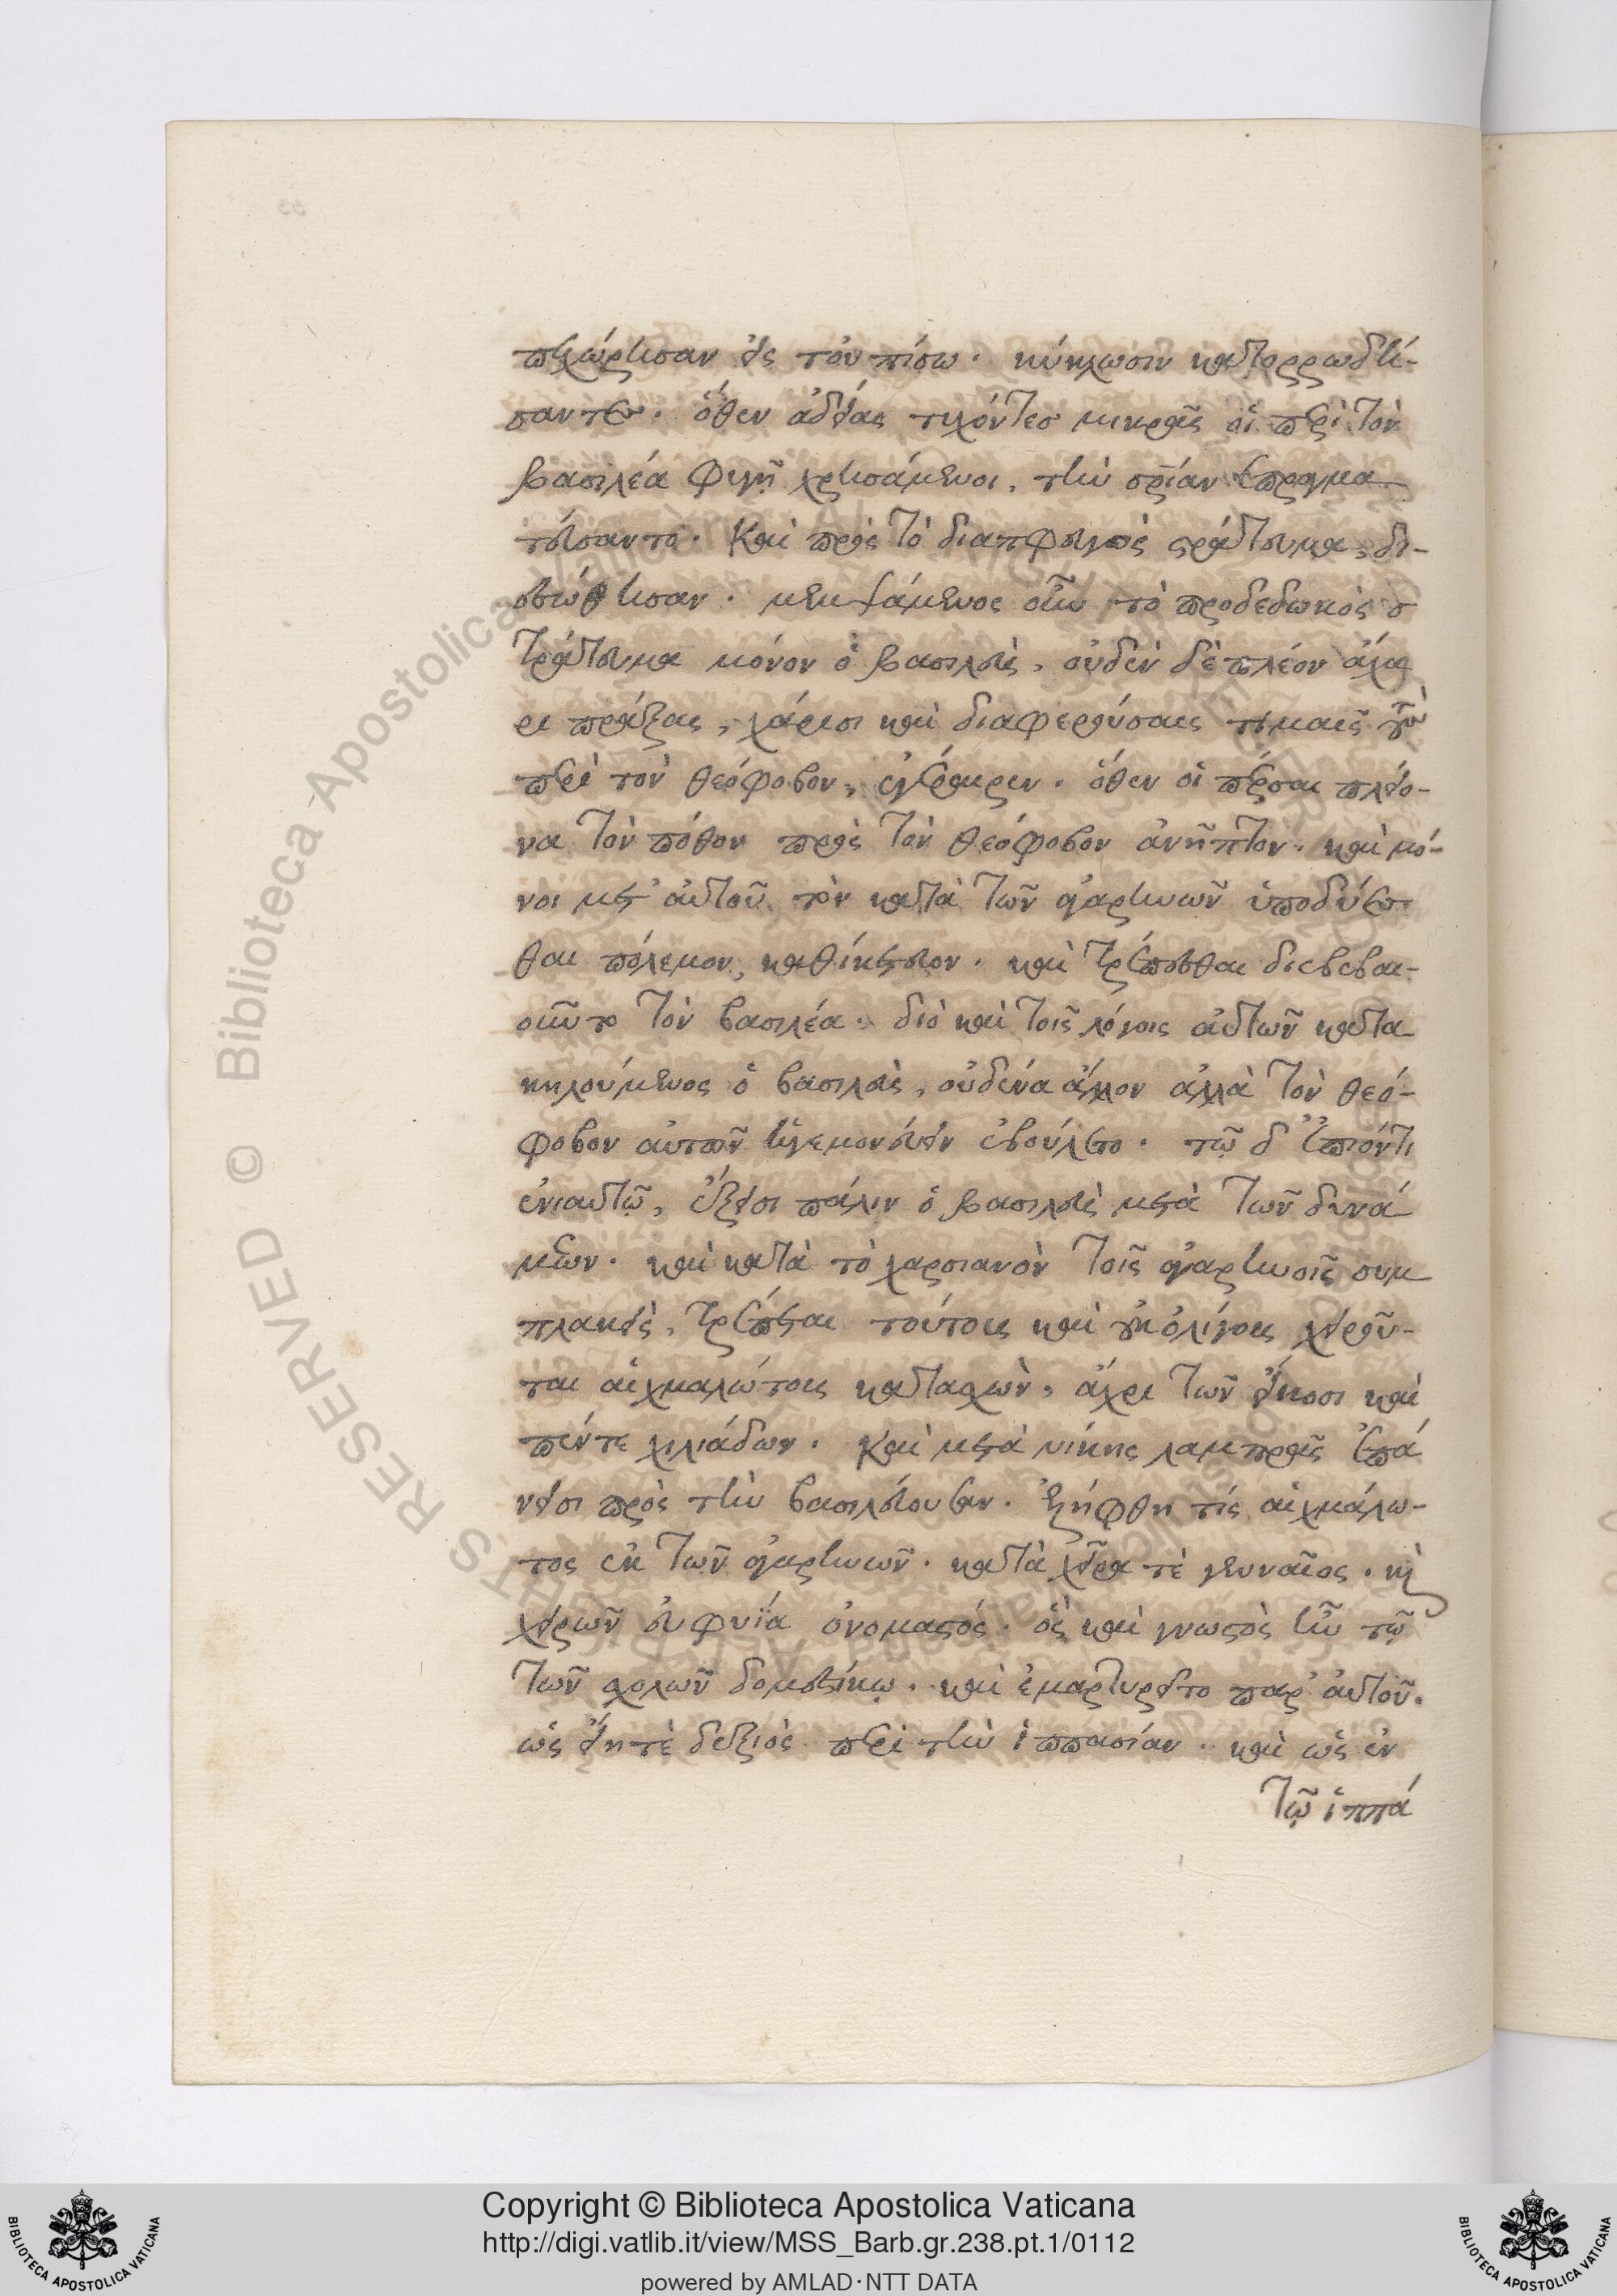 πεχώρησαν εἰς τὀυπίσω. κύκλωσιν κατορρωδή-
σαντες. ὅθεν ἀδείας τυχόντες μικρᾶς οἱ περὶ τὸν
βασιλέα φυγῇ χρησάμενοι, τὴν σρίαν ἐπραγμα
τεύσαντο. Καὶ πρὸς τὸ διαπεφευγὸς στράτευμα, δι-
εσώθησαν. μεμψάμενος οὖν τὸ προδεδωκὸς σ
τράτευμα μόνον ὁ βασιλεὺς, οὐδὲν δὲ πλέον ἄχα
ρι πράξας, χάρισι καὶ διαφερούσαις τιμαῖς τὸν
περὶ τὸν θεόφοβον, ἐγέραιρεν. ὅθεν οἱ πέρσαι πλείο-
να τὸν πόθον πρὸς τὸν θεόφοβον ἀνῆπτον. καὶ μό-
νοι μετ' αὐτοῦ τὸν κατὰ τῶν ἀγαρηνῶν ὑποδύεσ
θαι πόλεμον, καθικέτευον. καὶ τρέπεσθαι διεβεβαι-
οῦντο τὸν βασιλέα. διὸ καὶ τοῖς λόγοις αὐτῶν κατα
κηλούμενος ὁ βασιλεὺς, οὐδένα ἄλλον ἀλλὰ τὸν θεό-
φοβον αὐτῶν ἡγεμονεύειν ἐβούλετο. τῷ δ' ἐπιόντι
ἐνιαυτῷ, ἔξεισι πάλιν ὁ βασιλεὺς μετὰ τῶν δυνά
μεων. καὶ κατὰ τὸ χαρσιανὸν τοῖς ἀγαρηνοῖς συμ
πλακεὶς, τρέπεται τούτους καὶ οὐκ ὀλίγους χειροῦ-
ται αἰχμαλώτους κατασχὼν, ἄχρι τῶν εἴκοσι καὶ
πέντε χιλιάδων. Καὶ μετὰ νίκης λαμπρᾶς ἐπά
νεισι πρὸς τὴν βασιλεύουσαν. ἐλήφθη τίς αἰχμάλω-
τος ἐκ τῶν ἀγαρηνῶν. κατὰ χεῖρα τὲ γενναῖος. κὶ
χειρῶν εὐφυΐα ὀνομαστός. ὃς καὶ γνωστὸς ἦν τῷ
τῶν σχολῶν δομεστίκῳ. καὶ ἐμαρτυρεῖτο παρ' αὐτοῦ.
ὡς εἴη τὲ δεξιὸς περὶ τὴν ἱππασίαν. καὶ ὡς ἐν
τῷ ἱππά
RIGHTS RESERVED © Biblioteca Apostolica Vaticana
Copyright © Biblioteca Apostolica Vaticana
http://digi.vatlib.it/view/MSS_Barb.gr.238.pt.1/0112
powered by AMLAD·NTT DATA
BIBLIOTECA APOSTOLICA VATICANA
BIBLIOTECA APOSTOLICA VATICANA